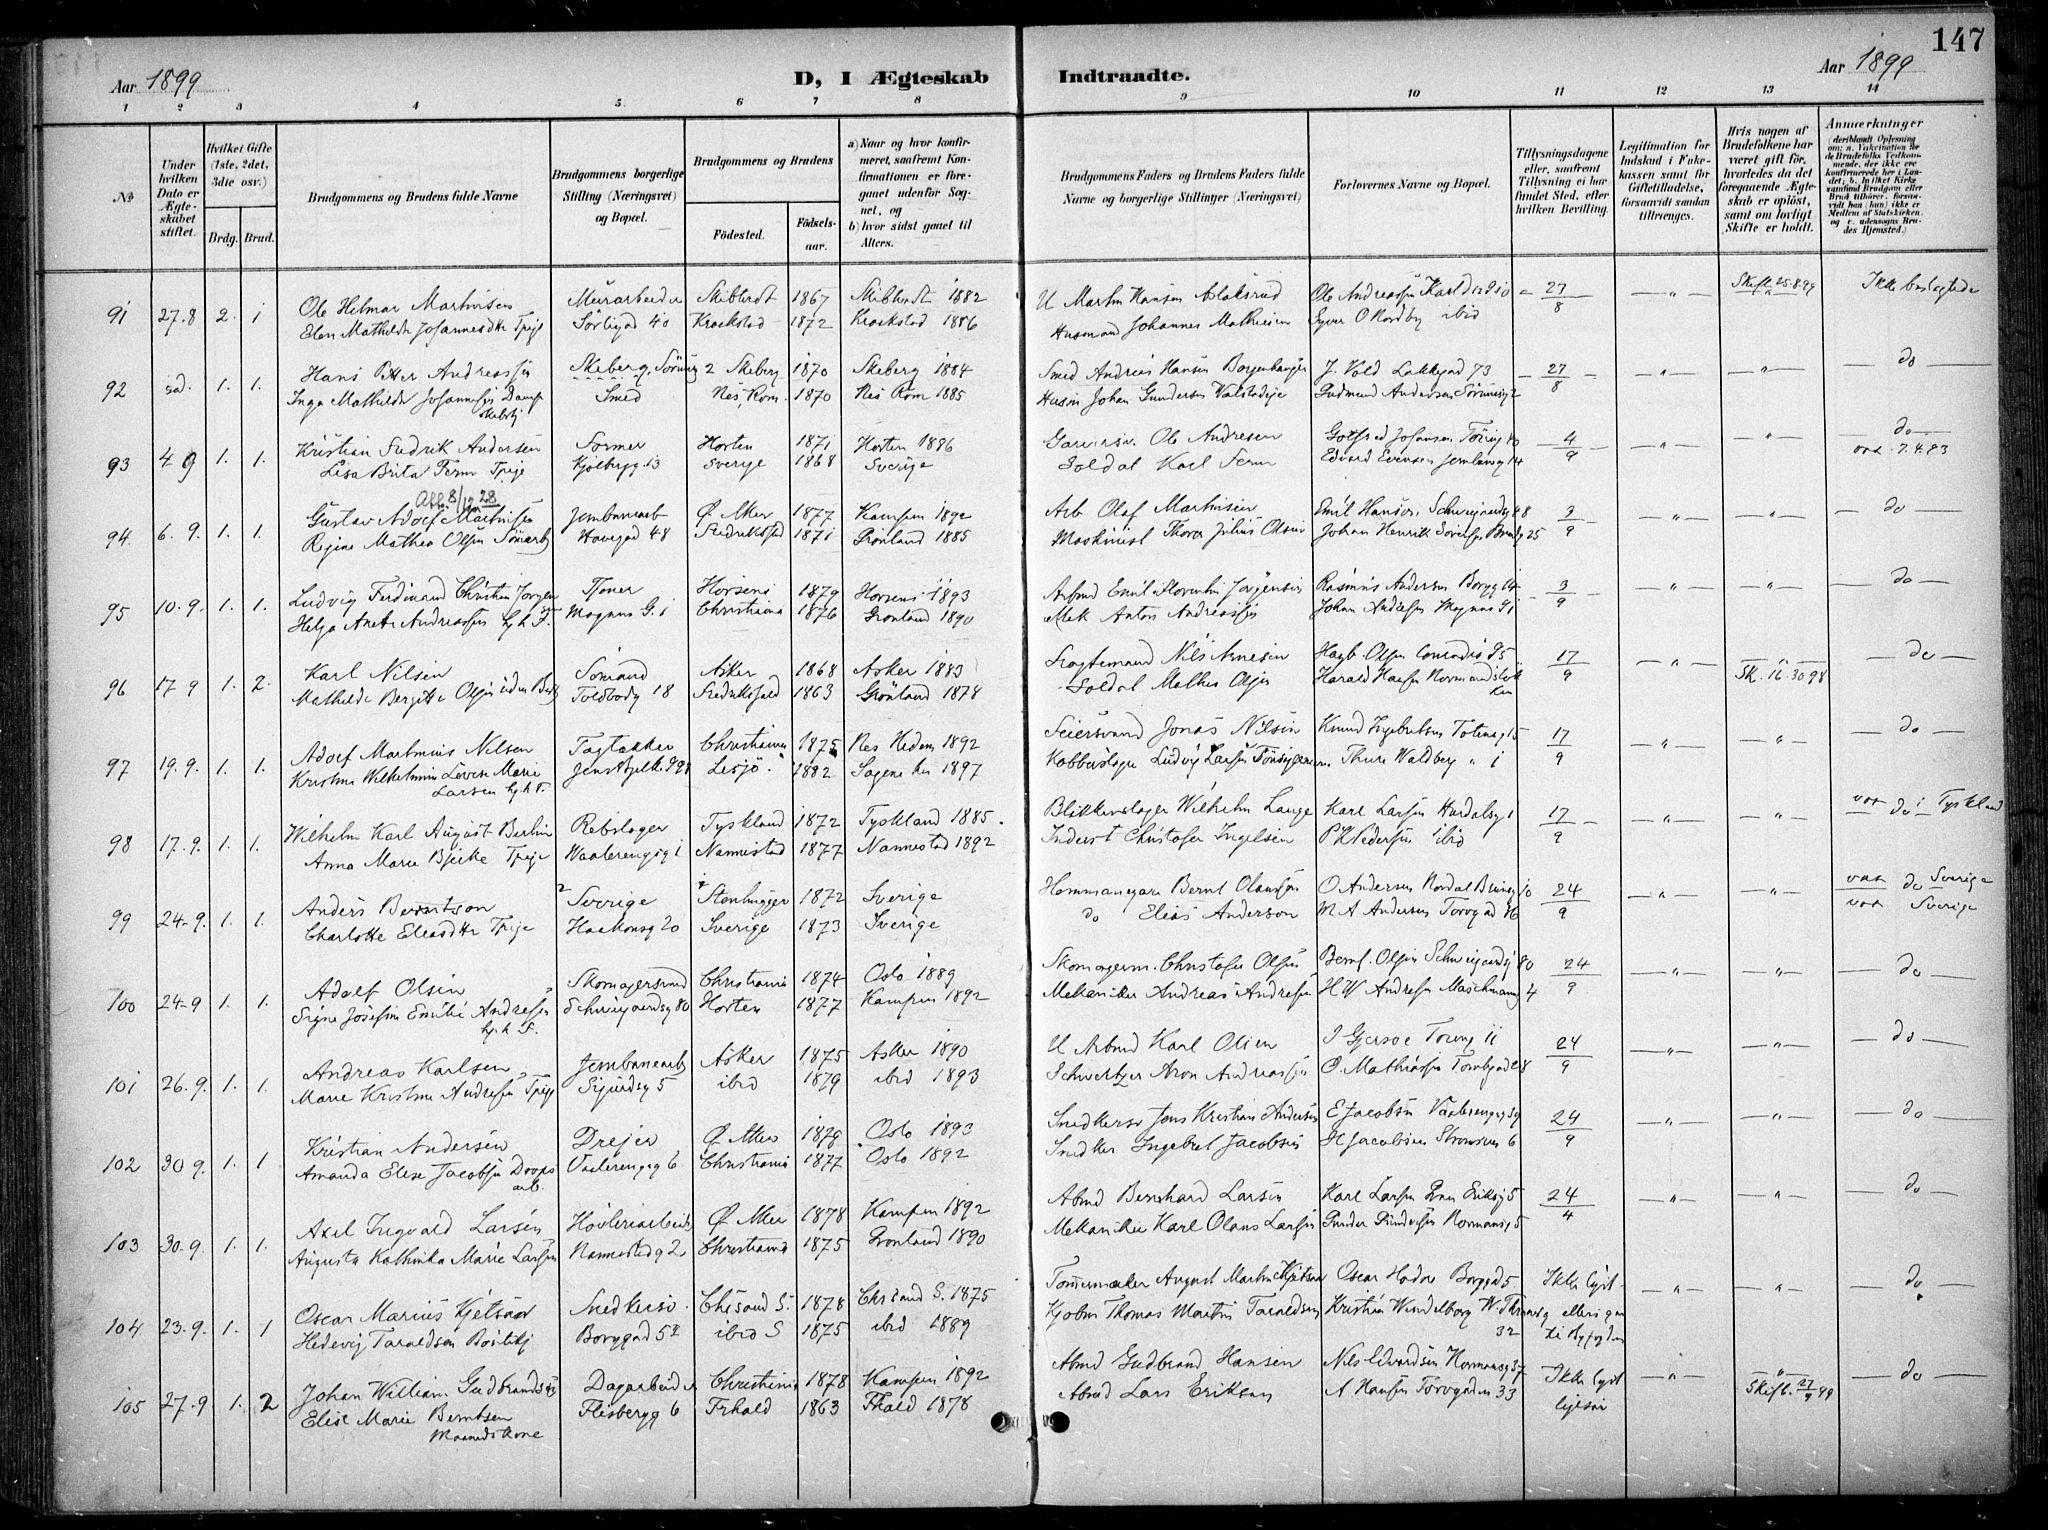 147
Aar 1899
D, I Ægteskab Indtraadte.
Aar 1899
1 2 3 4 5 6 7 8 9 10 11 12 13 14
No
Under hvilken Dato er Ægteskabet stiftet.
Hvilket Gifte (1ste, 2det, 3die osv.)
Brdg. Brud.
Brudgommens og Brudens fulde Navne
Brudgommens borgerlige Stilling (Næringsvei) og Bopæl.
Brudgommens og Brudens
Fødested. Fødselsaar.
a) Naar og hvor konfirmeret, saafremt Konfirmationen er foregaaet udenfor Sognet, og
b) hvor sidst gaaet til Alters.
Brudgommens Faders og Brudens Faders fulde Navne og borgerlige Stillinger (Næringsvei)
Forlovernes Navne og Bopæl.
Tillysningsdagene eller, saafremt Tillysning ei har fundet Sted, efter hvilken Bevilling.
Legitimation for Indskud i Enkekassen samt for Giftetilladelse, forsaavidt saadan tiltrenges.
Hvis nogen af Brudefolkene har været gift før, hvorledes da det foregaaende Ægteskab er opløst, samt om lovligt Skifte er holdt.
Anmærkninger
(deriblandt Oplysning om: a. Vakcination for de Brudefolks Vedkommende, der ikke ere konfirmerede her i Landet; b. Hvilket Kirkesamfund Brudgom eller Brud tilhører, forsaavidt han (hun) ikke er Medlem af Statskirken. og c. udensogns Brudes Hjemsted.)
91 27.8 2. 1 Ole Helmar Martinsen Murarbeider Skibtvedt 1867 Skibtvedt 1882 U Martin Hansen Aslaksrud Ole Andreassen 27/8 — „ — Skifte 25.8.99 Ikke beslægtede
Elen Mathilde Johannesdtr Tpige Sørligad 40 Kraakstad 1872 Kraakstad 1886 Husmand Johannes Mathiesen O Nordby ibid
92 sd. 1. 1. Hans Petter Andreassen Skeberg, 2 Skeberg 1870 Skeberg 1884 Smed Andreas Hansen Borgenhaugen J. Vold Lakkegad 73 27/8 — „ — — „ — do
Inga Mathilde Johannesen Smed Nes, Rom. 1870 Nes Rom 1885 Husm Johan Gundersen Gudmund Andersen 2
93 4 9 1. 1. Kristian Fredrik Andersen Former Horten 1871 Horten 1886 Ole Andresen Gotfred Johansen 4/9 — „ — — „ — do
Lisa Brita Ferm Tpige Kjølbergg 13 Sverige 1868 Sverige Soldat Karl Ferm Edvard Evensen 14 vac. 7.4.83
8/12 28
94. 6. 9. 1. 1. Gustav Adolf Martinsen Jernbanearb Ø. Aker 1877 Kampen 1892 Arb Olaf Martinsen Emil Hansen Schweigaardsg 48 3/9 — „ — — „ — do
Regine Mathea Olsen 48 Fredrikstad 1871 Grønland 1885 Maskinist Thorer Julius Olsen Johan Henrik 25
95 10. 9. 1. 1. Ludvig Ferdinand Christian Jørgen Tjener Horsens 1879 Horsens 1893 Arbmd Emil Florentin Jørgensen Rasmus Andersen Borgg 14 3/9 — „ — — „ — do
Helga Anette Andreassen hj. h F. Magnus G. 1 Christiania 1876 Grønland 1890 Mek Anton Andreassen Johan Andresen Magnus G1
96 17 9 1. 2. Karl Nilsen Sømand Asker 1868 Asker 1883 Nils Arnesen Olsen 17/9 — „ — — „ — do
Mathilde Bergitte Olsen Toldbodg 18 Fredrikshald 1863 Grønland 1878 Soldat Mathis Olsen Harald Hansen Sk. 16.30 98
97 19. 9. 1. 1. Adolf Martinius Nilsen Tagtækker Christiania 1875 Nes Hedem 1892 Jonas Nilsen Knud Ingebretsen Totensg 15 17/9 — „ — — „ — do
Kristine Wilhelmine Lovise Marie Lesjø 1882 Sagene her 1897 Kobberslager Ludvig Larsen Thure Waldberg „ 1
Larsen hj. h F.
98 17. 9. 1. 1. Wilhelm Karl August Berlin Rebslager Tyskland 1872 Tyskland 1885. Blikkenslager Wilhelm Lange Karl Larsen Hurdalsg 1 17/9 — „ — — „ — vac do i Tyskland
Anna Marie Bjerke Tpige Vaalerengsg 1 Nannestad 1877 Nannestad 1892 Inderst Christofer Ingelsen P K Pedersen ibid
99 24. 9. 1. 1. Anders Berntson 2 Sverige 1 Stenhugger 1872 Sverige Hemmansegare Bernt Olausson O Andersen 10 24/9 — „ — — „ — vac do Sverige
Charlotte Eliasdtr Tpige Haakonsg 20 Sverige 1873 Sverige do Elias Anderson M A Andersen Torvgad 16 vac Sverige
100 24-9 1. 1. Adolf Olsen Skomagersvend Christiania 1874 Oslo 1889 Skomagerm. Christofer Olsen Bernt. Olsen Schweigaardsg 80 24/9 — „ — — „ — do
Signe Josefine Emilie Andresen Schweigaardsg 80 Horten 1877 Kampen 1892 Mekaniker Andreas Andresen H W Andresen Maschmanng 4
hj. h F.
101 26. 9. 1. 1. Andreas Karlsen Jernbanearb Asker 1875 Asker 1890 U Arbmd Karl Olsen 24/9 — „ — — „ — do
Marie Kristine Andresen Tpige Sigurdsg 5 ibid 1879 ibid 1893 Schweitzer Aron Andreassen O. Mathiassen
102 30 9. 1. 1 Kristian Andersen Drejer Ø Aker 1878 Oslo 1893 Snedkersv Jens Kristian Andersen E Jacobsen Vaalerengsg 24/9 — „ — — „ — do
Amanda Elise Jacobsen Vaalerengsg 6 Christiania 1877 Oslo 1892 Snedker Ingebret Jacobsen Jacobsen Strømsvn 6
103 30. 9. 1. 1. Axel Ingvald Larsen Høvleriarbeider Ø. Aker 1878 Kampen 1892 Abmd Bernhard Larsen Karl Larsen 5 24/4 — „ — — „ — do
Augusta Kathinka Marie Larsen Nannestadg 2 Christiania 1875 Grønland 1890 Mekaniker Karl Olaus Larsen Gunder Gundersen Normansg 5
104 23. 9. 1. 1 Oscar Marius Kjetsaa Snedkersv. Chrsand S. 1878 Chrsand S. 1875 Tømmermaker August Martin Kjetsaa Oscar Borggad 5 Ikke lyst — „ — — „ — do
Hedevig Taraldsen Borggad 5 ibid S 1875 ibid 1889 Kjøbm Thomas Martin Taraldsen Kristian Wendelborg
32
105 27. 9 1. 2 Johan William Gudbrandsen Dagarbeider Christiania 1878 Kampen 1892 Abmd Gudbrand Hansen Nils Edvardsen Normansg 37 Ikke lyst — „ — „ do
Elise Marie Berntsen Flesbergg 6 Frhald 1863 Fhald 1878 Abmd Lars Eriksen A Hansen Torvgaden 33 Skift. 27/9 99